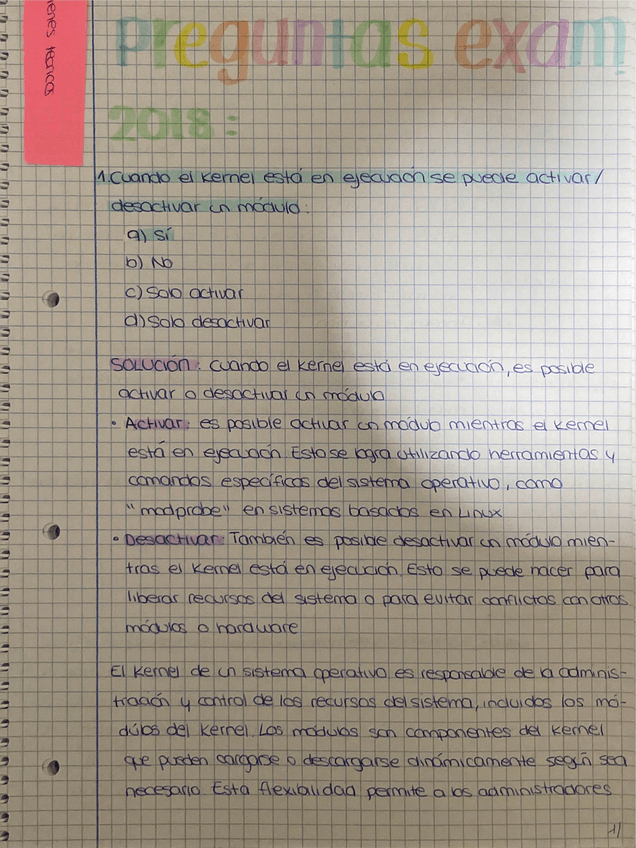 enes teóricos
preguntas exam
2018:
1. Cuando el Kernel está en ejecución se puede activar/
desactivar un módulo:
a) Sí
b) No
c) Solo activar
d) Solo desactivar
Solución: cuando el Kernel está en ejecución, es posible
activar o desactivar un módulo
• Activar: es posible activar un módulo mientras el Kernel
está en ejecución. Esto se logra utilizando herramientas y
comandos específicos del sistema operativo, como
"modprobe" en sistemas basados en Linux
• Desactivar: También es posible desactivar un módulo mien-
tras el Kernel está en ejecución. Esto se puede hacer para
liberar recursos del sistema o para evitar conflictos con otros
módulos o hardware
El Kernel de un sistema operativo es responsable de la adminis-
tración y control de los recursos del sistema, incluidos los mó-
dulos del Kernel. Los módulos son componentes del Kernel
que pueden cargarse o descargarse dinámicamente según sea
necesario. Esta flexibilidad permite a los administradores
1/